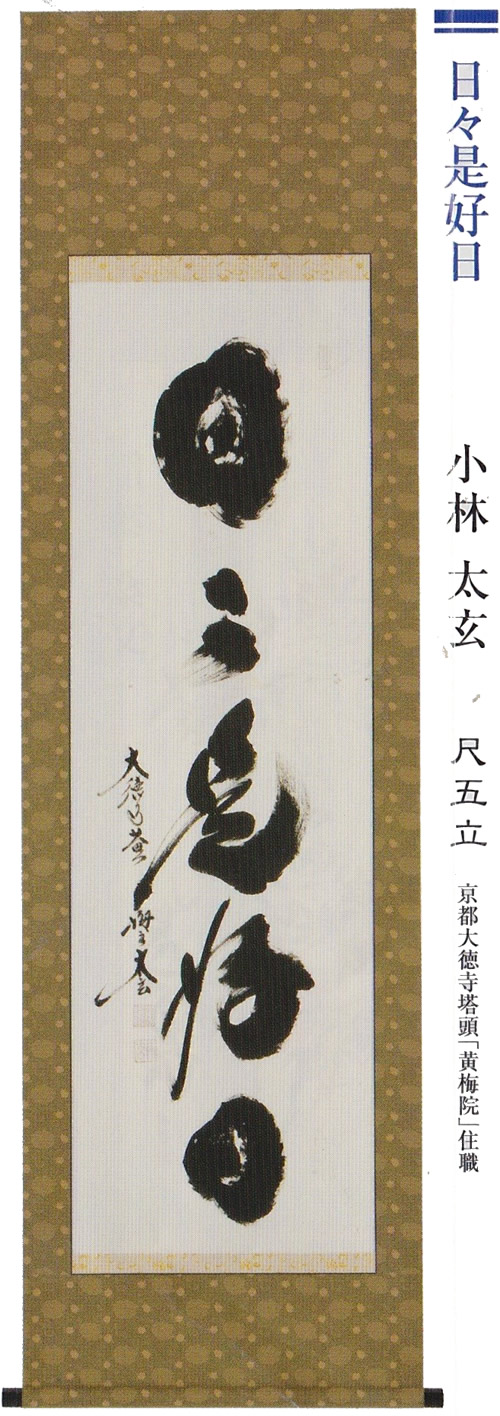 日々是好日
小林 太玄
尺五立
京都大徳寺塔頭「黄梅院」住職
日々是好日